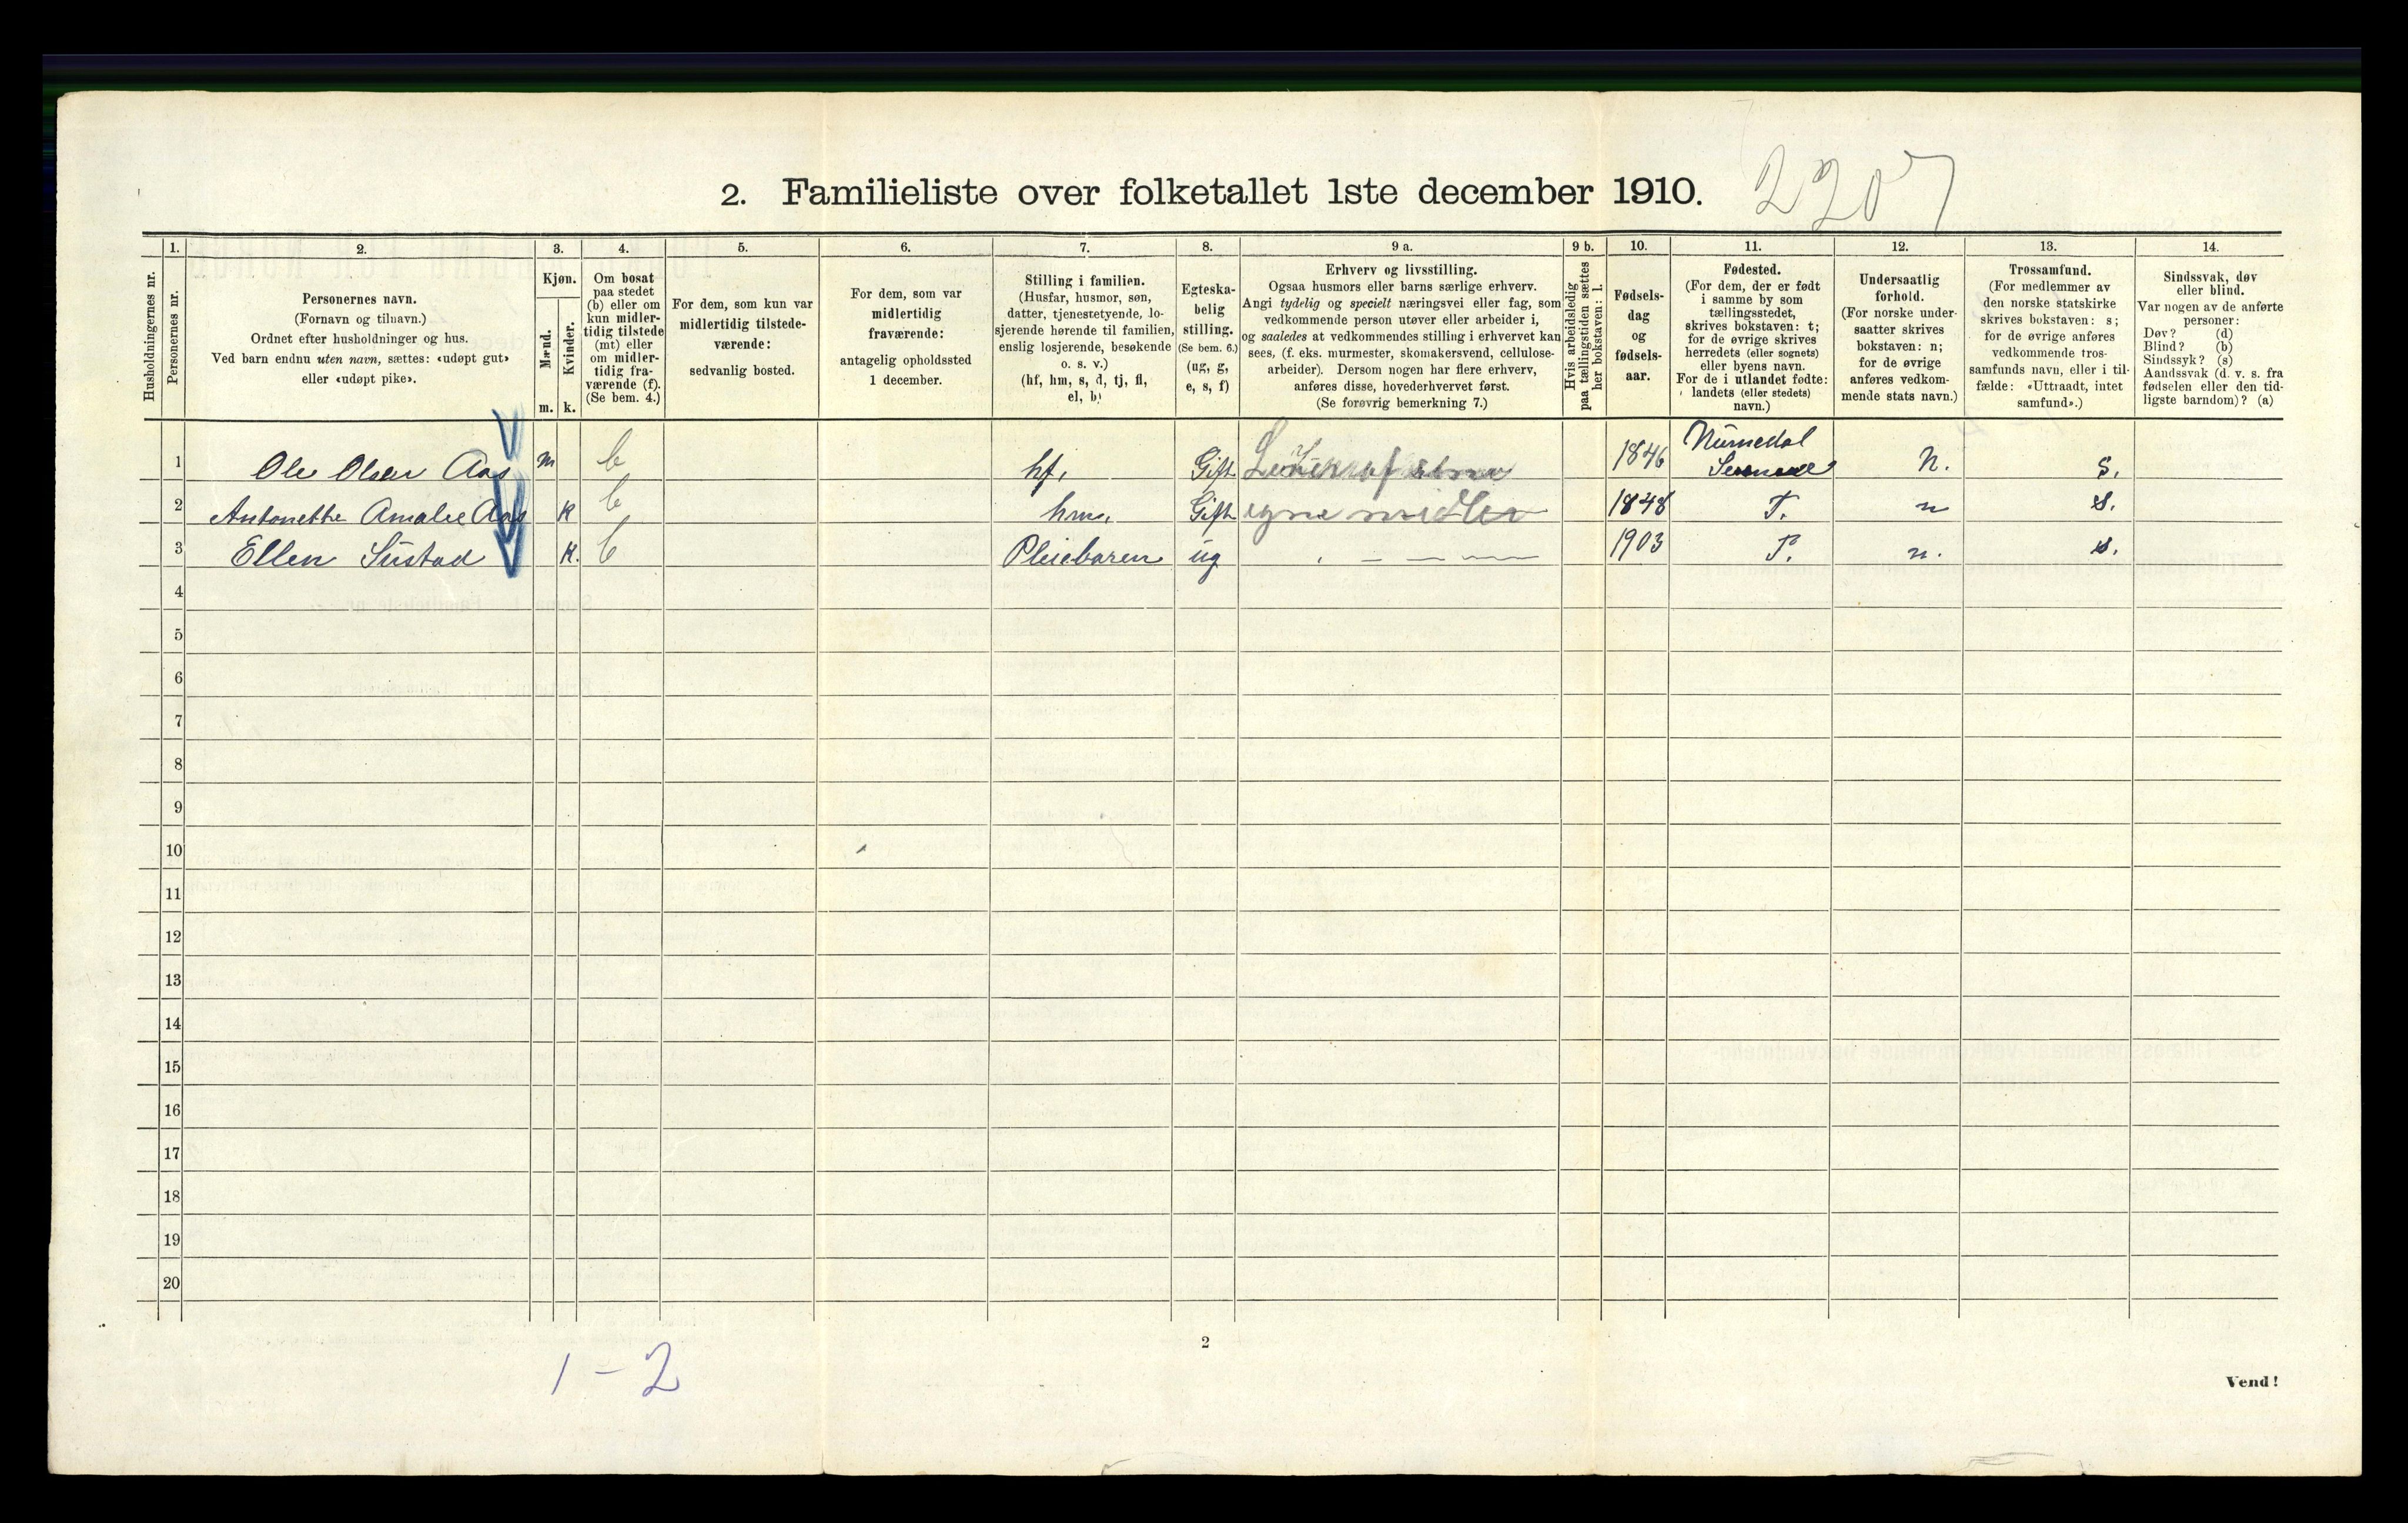 2. Familieliste over folketallet 1ste december 1910.
2207
Husholdningernes nr.
1.
Personernes nr.
2.
Personernes navn.
(Fornavn og tilnavn.)
Ordnet efter husholdninger og hus.
Ved barn endnu uten navn, sættes: «udøpt gut»
eller «udøpt pike».
3.
Kjøn.
Mænd.
m.
Kvinder.
k.
4.
Om bosat
paa stedet
(b) eller om
kun midler-
tidig tilstede
(mt) eller
om midler-
tidig fra-
værende (f).
(Se bem. 4.)
5.
For dem, som kun var
midlertidig tilstede-
værende:
sedvanlig bosted.
6.
For dem, som var
midlertidig
fraværende:
antagelig opholdssted
1 december.
7.
Stilling i familien.
(Husfar, husmor, søn,
datter, tjenestetyende, lo-
sjerende hørende til familien,
enslig losjerende, besøkende
o. s. v.)
(hf, hm, s, d, tj, fl,
el, b)
8.
Egteska-
belig
stilling.
(Se bem. 6.)
(ug, g,
e, s, f)
9 a.
Erhverv og livsstilling.
Ogsaa husmors eller barns særlige erhverv.
Angi tydelig og specielt næringsvei eller fag, som
vedkommende person utøver eller arbeider i,
og saaledes at vedkommendes stilling i erhvervet kan
sees, (f. eks. murmester, skomakersvend, cellulose-
arbeider). Dersom nogen har flere erhverv,
anføres disse, hovederhvervet først.
(Se forøvrig bemerkning 7.)
9 b.
Hvis arbeidsledig
paa tællingstiden sættes
her bokstaven: l.
10.
Fødsels-
dag
og
fødsels-
aar.
11.
Fødested.
(For dem, der er født
i samme by som
tællingsstedet,
skrives bokstaven: t;
for de øvrige skrives
herredets (eller sognets)
eller byens navn.
For de i utlandet fødte:
landets (eller stedets)
navn.)
12.
Undersaatlig
forhold.
(For norske under-
saatter skrives
bokstaven: n;
for de øvrige
anføres vedkom-
mende stats navn.)
13.
Trossamfund.
(For medlemmer av
den norske statskirke
skrives bokstaven: s;
for de øvrige anføres
vedkommende tros-
samfunds navn, eller i til-
fælde: «Uttraadt, intet
samfund».)
14.
Sindssvak, døv
eller blind.
Var nogen av de anførte
personer:
Døv? (d)
Blind? (b)
Sindssyk? (s)
Aandssvak (d. v. s. fra
fødselen eller den tid-
ligste barndom)? (a)
1 Ole Olsen Aas m b hf. Gift 1846 Numedal N. s.
2 Antonette Amalie Aas k b hm. Gift egne midler 1848 T. n s.
3 Ellen Sustad k. b Pleiebaren ug 1903 T. n. s.
4
5
6
7
8
9
10
11
12
13
14
15
16
17
18
19
20
2
1 - 2
Vend!